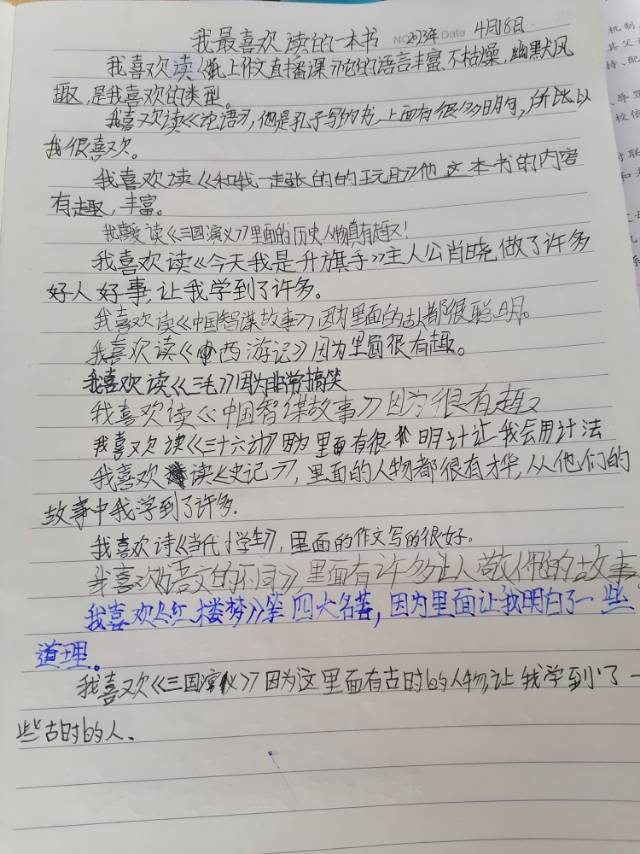 我最喜欢读的一本书 NO 2023年 Date 4月18日
我喜欢读《纸上作文直播课》它的语言丰富不枯燥,幽默风
趣,是我喜欢的类型。
我喜欢读《论语》,他是孔子写的书,上面有很多名句,所以
我很喜欢。
我喜欢读《和我一起 的 》他这本书的内容
有趣,丰富。
我喜爱读《三国演义》里面的历史人物真有趣!
我喜欢读《今天我是升旗手》主人公肖晓做了许多
好人好事,让我学到了许多。
我喜欢读《中国智谋故事》因为里面的 都很聪明。
我喜欢读《西游记》因为里面很有趣。
我喜欢读《三毛》因为非常搞笑
我喜欢读《中国智谋故事》因为很有趣
我喜欢读《三十六计》因为里面有很 明计让我会用计法
我喜欢读《史记》,里面的人物都很有才华,从他们的
故事中我学到了许多.
我喜欢诗《当代小学生》,里面的作文写的很好。
我喜欢 语文的 》里面有许多让人敬佩的故事
我喜欢《红楼梦》等四大名著,因为里面让我明白了一些
道理。
我喜欢《三国演义》因为这里面有古时的人物,让我学到了一
些古时的人、
机制